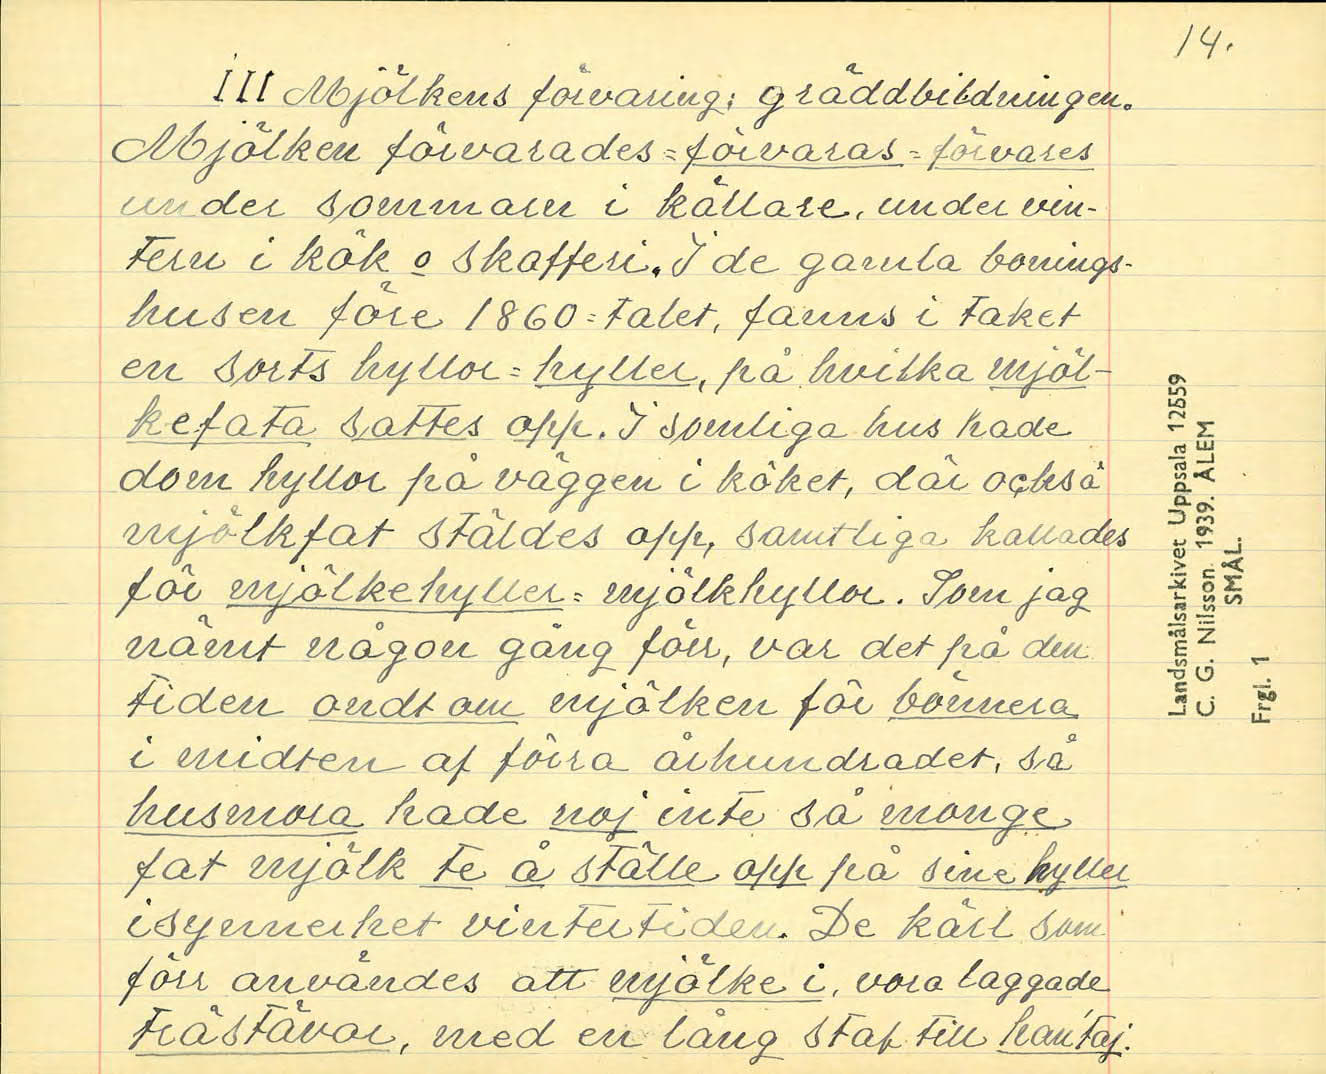 14.
III Mjölkens förvaring; gräddbildningen.
Mjölken förvarades = förvaras = förvares
under sommaren i källare, under vin-
tern i kök o skafferi. I de gamla bonings-
husen före 1860=talet, fanns i taket
en sorts hyllor = hyller, på hvilka mjöl-
kefata sattes opp. I somliga hus hade
dom hyllor på väggen i köket, där också
mjölkfat stäldes opp, samtliga kallades
för mjölkehyller = mjölkhyllor. Som jag
nämt någon gång förr, var det på den
tiden ondt om mjölken för bönnera
i midten af förra århundradet, så
husmora hade noj inte så monge
fat mjölk te å ställe opp på sine hyller
isynnerhet vintertiden. De kärl som
förr användes att mjölke i, vora laggade
trästävor, med en lång staf till han'taj.
Landsmålsarkivet Uppsala 12659
C. G. Nilsson. 1939. ÅLEM
SMÅL.
Frgl. 1